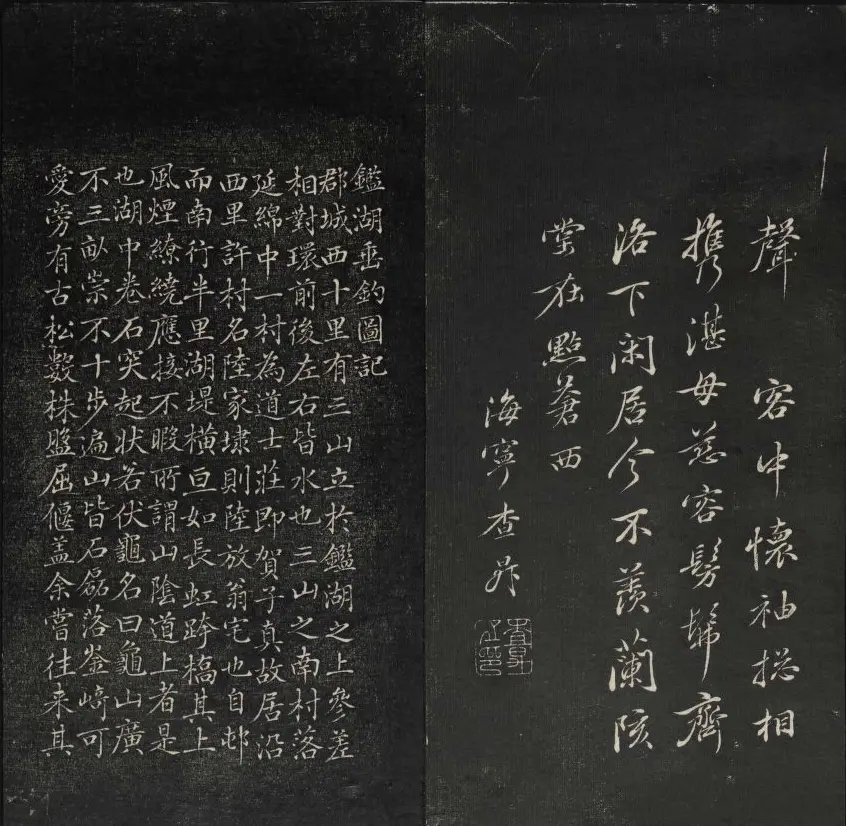 聲 容中懷袖㧾相
攜湛母慈容髣髴齊
洛下閑居今不羨蘭陔
堂在點蒼西
海寧查昇
查昇之印
鑑湖垂釣圖記
郡城西十里有三山立於鑑湖之上參差
相對環前後左右皆水也三山之南村落
延綿中一村為道士莊即賀子真故居沿
西里許村名陸家埭則陸放翁宅也自邨
而南行半里湖堤橫亘如長虹跨槁其上
風煙繚繞應接不暇所謂山陰道上者是
也湖中卷石突起狀若伏龜名曰龜山廣
不三畝崇不十步遍山皆石磊落崟崎可
愛旁有古松數株盤屈偃盖余嘗往来其